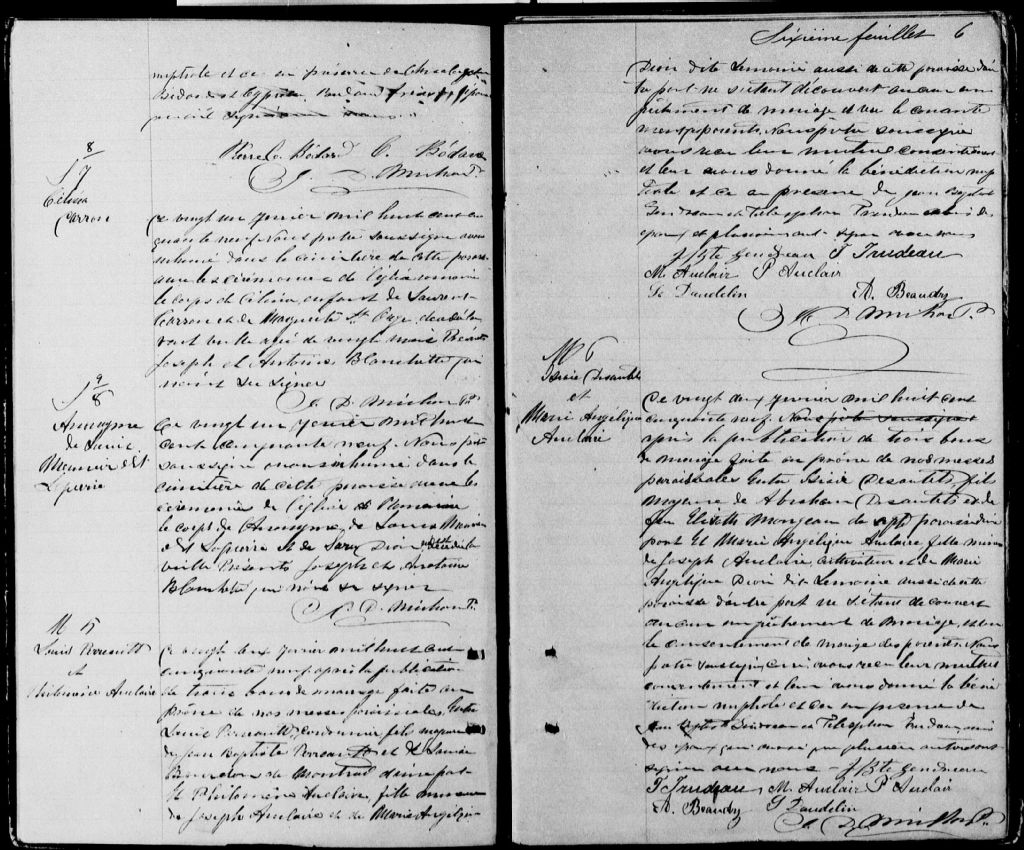 nuptiale et ce en présence de
Bédard et
Pierre C. Bédard C. Bédard
J. D. Michon Ptre
8
S 7
Célina
Carron
Ce vingt un janvier mil huit cent cin
quante neuf Nous prêtre soussigné avons
inhumé dans le cimitière de cette paroisse
avec les cérémonies de l'église romaine
le corps de Célina, enfant de Laurent
Carron et de Marguerite St Onge, décédé
âgé de vingt mois Présents
Joseph et Antoine Blanchette qui
n'ont su signer
J. D. Michon Ptre
9
S 8
Anonyme
de Louis
Meunier dit
Lapierre
Ce vingt un janvier mil huit
cent cinquante neuf Nous prêtre
soussigné avons inhumé dans le
cimitière de cette paroisse avec les
cérémonies de l'église Romaine
le corps de Anonyme, de Louis Meunier
dit Lapierre et de Dion, décédé la
veille Présents Joseph et Antoine
Blanchette, qui n'ont su signer
J. D. Michon Ptre
M 5
Louis Perrault
et
Philomène Auclaire
Ce vingt deux janvier mil huit cent
cinquante neuf après la publication
de trois bans de mariage faite au
prône de nos messes paroissiales, Entre
Louis Perrault, cordonnier, fils majeur
de Jean Baptiste Perrault et de Louise
Bourdon de Montréal d'une part
Et Philomène Auclaire, fille mineure
de Joseph Auclaire et de Marie Angélique
Sixième feuillet 6
Dion dite Lemoine aussi de cette paroisse d'autre
part ne s'étant découvert aucun em
pêchement de mariage et vu le consente
ment des parents, Nous prêtre soussigné
avons reçu leur mutuel consentement
et leur avons donné la bénédiction nup
tiale et ce en présence de Jean Baptiste
Gendreau et Télesphore Trudeau amis des
époux et plusieurs autres signé avec nous
J Bte Gendreau T Trudeau
M. Auclair P Auclair
G Daudelin A. Beaudry
J. D. Michon Ptre
M 6
Desautels
et
Marie Angélique
Auclaire
Ce vingt deux janvier mil huit cent
cinquante neuf Nous prêtre soussigné
après la publication de trois bans
de mariage faite au prône de nos messes
paroissiales Entre Desautels, fils
majeur de Abraham Desautels et de
feu Elisabeth Mongeau de paroisse d'une
part Et Marie Angélique Auclaire fille mineure
de Joseph Auclaire, cultivateur et de Marie
Angélique Dion dit Lemoine aussi de cette
paroisse d'autre part ne s'étant découvert
aucun empêchement de mariage, et vu
le consentement de mariage des parents, Nous
prêtre soussigné avons reçu leur mutuel
consentement et leur avons donné la béné
diction nuptiale et ce en présence de
Jean Baptiste Gendreau et Télesphore Trudeau, amis
des époux qui aussi que plusieurs autres ont
signé avec nous — J Bte Gendreau
T Trudeau, M. Auclair P Auclair
A. Beaudry G Daudelin
J. D. Michon Ptre